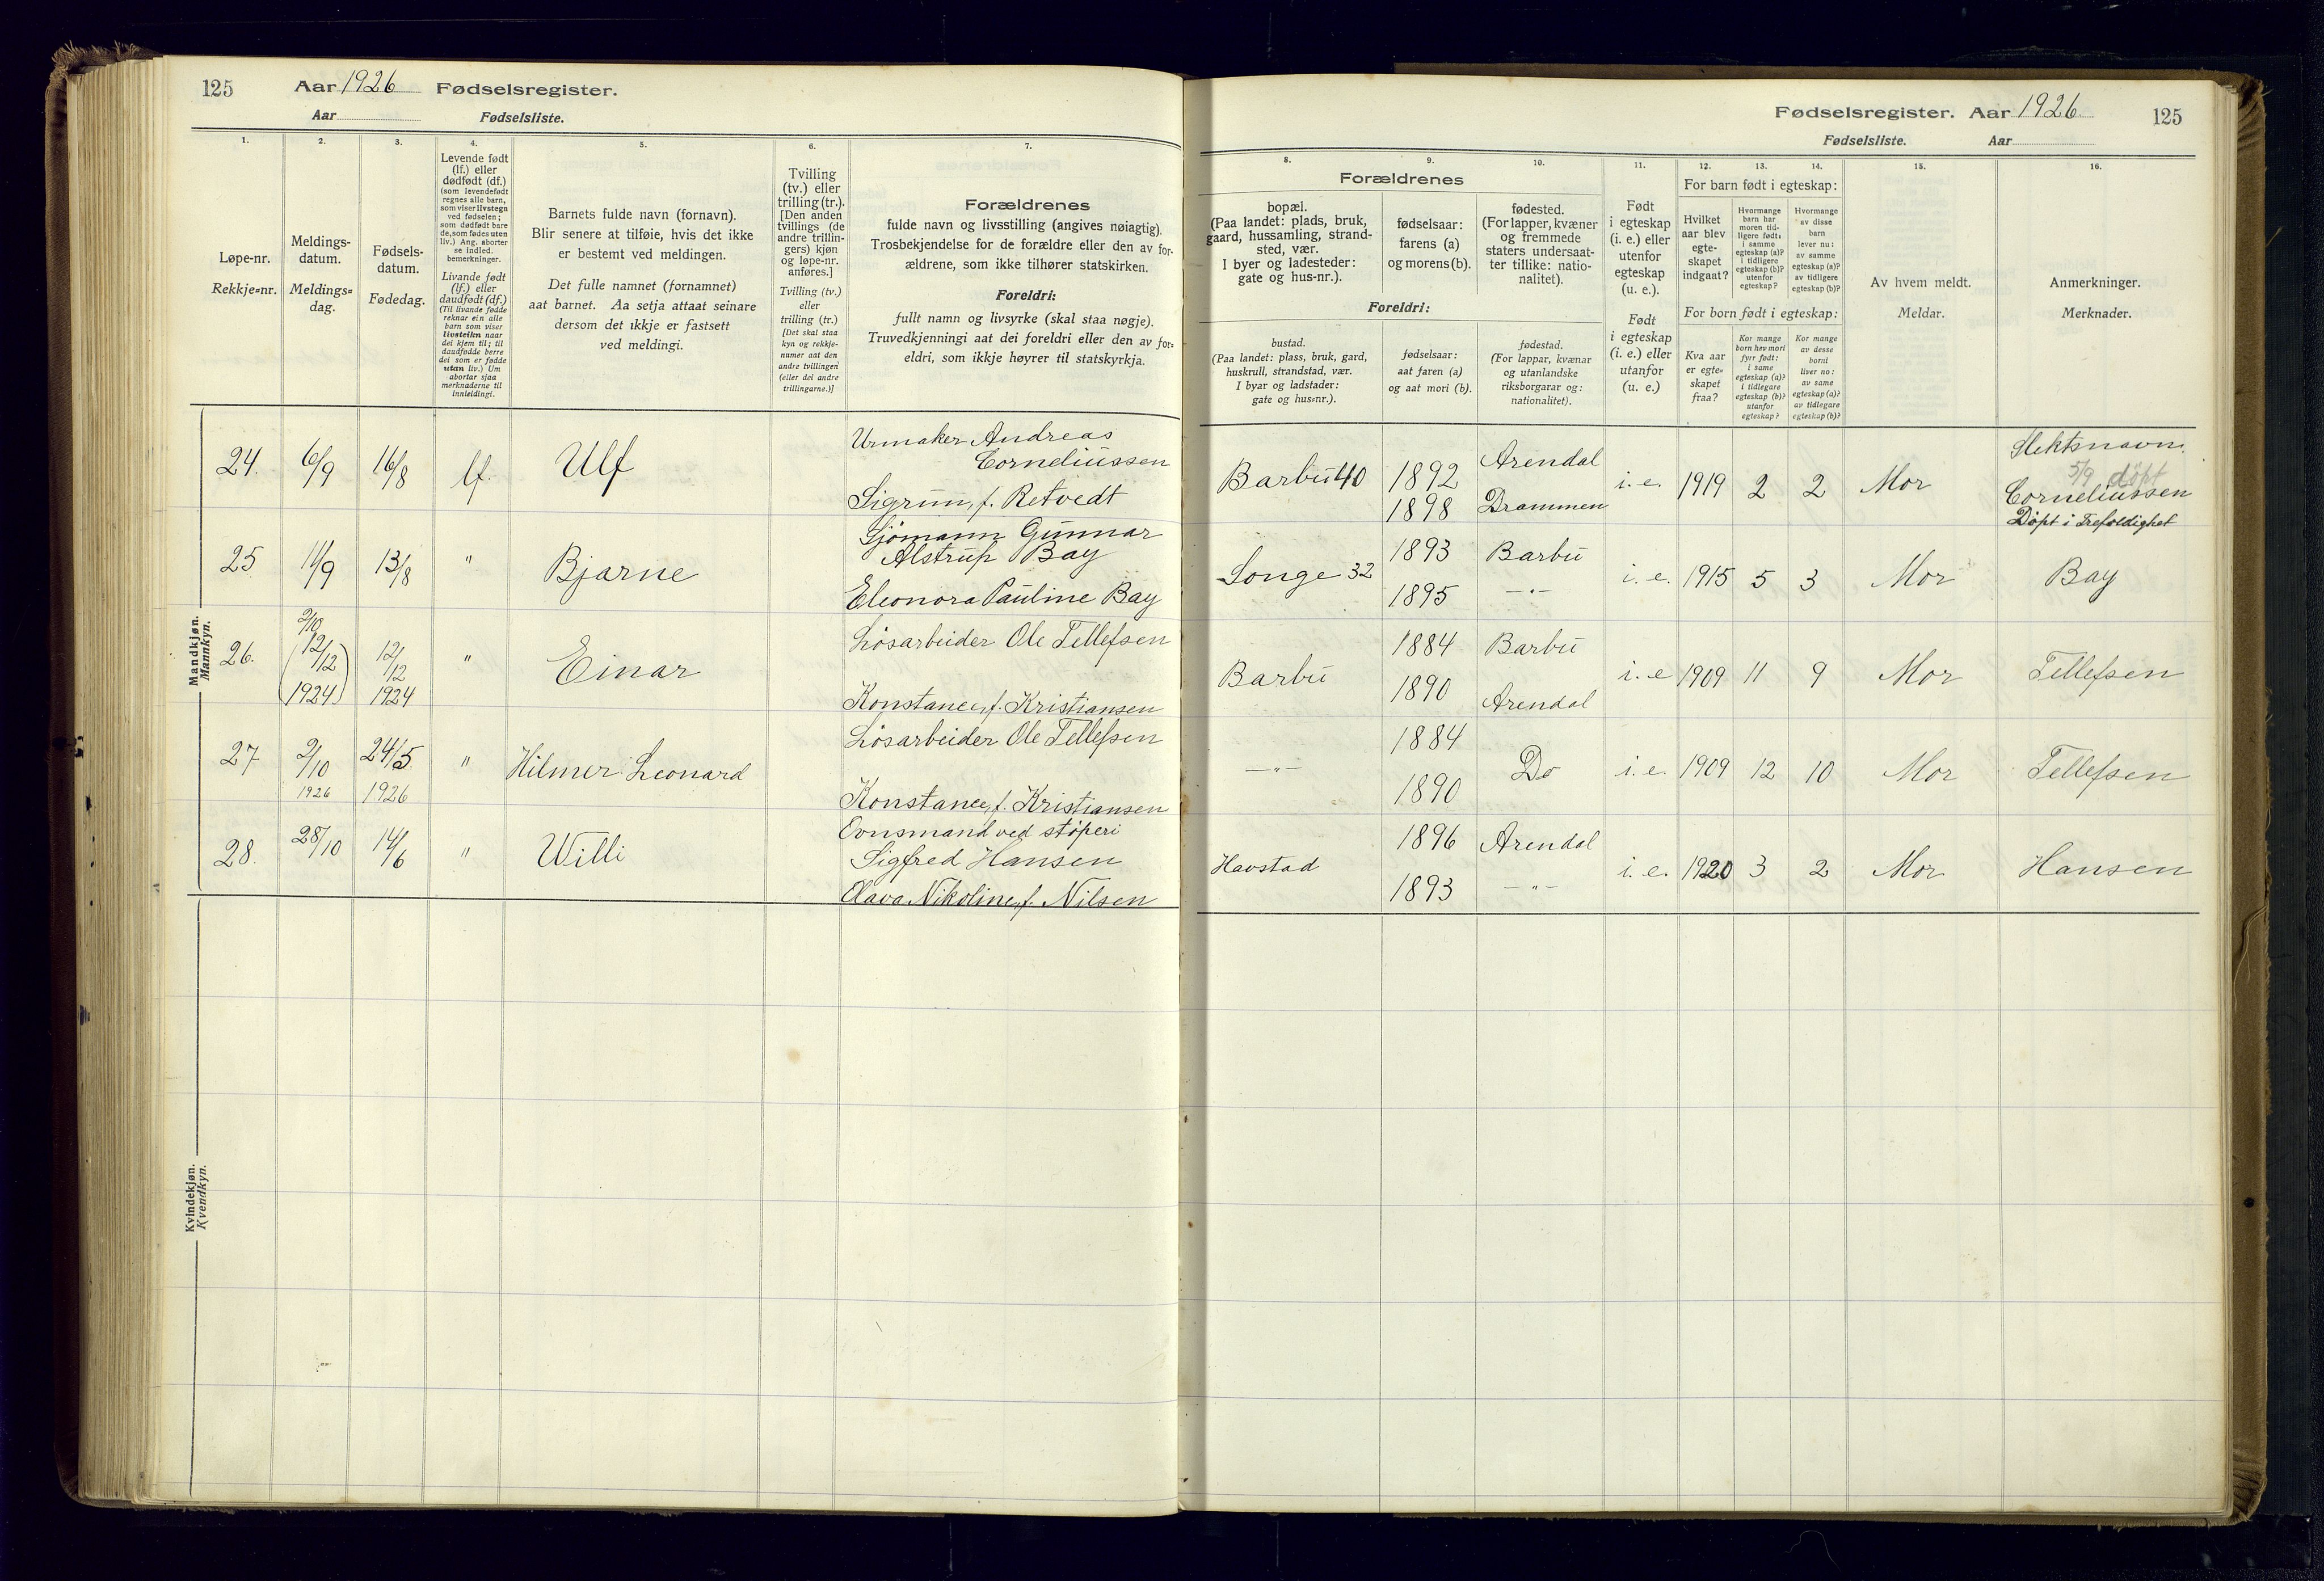 125 Aar 1926 Fødselsregister.
Aar Fødselsliste.
1. 2. 3. 4. 5. 6. 7.
Løpe-nr.
Rekkje=nr.
Meldings-
datum.
Meldings=
dag.
Fødsels-
datum.
Fødedag.
Levende født
(lf.) eller
dødfødt (df.)
(som levendefødt
regnes alle barn,
som viser livstegn
ved fødselen;
som dødfødt bare
de, som fødes uten
liv.) Ang. aborter
se indled.
bemerkninger.
Livande født
(lf.) eller
daudfødt (df.)
(Til livande fødde
reknar ein alle
barn som viser
livsteikn naar
dei kjem til; til
daudfødde berre
dei som er fødde
utan liv.) Um
abortar sjaa
merknaderne til
innleidingi.
Barnets fulde navn (fornavn).
Blir senere at tilføie, hvis det ikke
er bestemt ved meldingen.
Det fulle namnet (fornamnet)
aat barnet. Aa setja attaat seinare
dersom det ikkje er fastsett
ved meldingi.
Tvilling
(tv.) eller
trilling (tr.).
[Den anden
tvillings (de
andre trillin-
gers) kjøn
og løpe-nr.
anføres.]
Tvilling (tv.)
eller
trilling (tr.)
[Det skal staa
kyn og rekkje-
numer aat den
andre tvillingen
(eller dei andre
trillingarne.)]
Forældrenes
fulde navn og livsstilling (angives nøiagtig).
Trosbekjendelse for de forældre eller den av for-
ældrene, som ikke tilhører statskirken.
Foreldri:
fullt namn og livsyrke (skal staa nøgje).
Truvedkjenningi aat dei foreldri eller den av for=
eldri, som ikkje høyrer til statskyrkja.
Mandkjøn.
Mannkyn.
24. 6/9 16/8 lf. Ulf
Urmaker Andreas
Corneliussen
Sigrun, f. Retvedt
25 11/9 13/8 " Bjarne
Sjømann Gunnar
Alstrup Bay
Eleonora Pauline Bay
26. 2/10 (12/12 1924) 12/12 1924 " Einar
Løsarbeider Ole Tellefsen
Konstance, f. Kristiansen
27 2/10 1926 24/5 1926 " Hilmer Leonard
Løsarbeider Ole Tellefsen
Konstance, f. Kristiansen
28. 28/10 14/6 " Willi
Ovnsmand ved støperi
Sigfred Hansen
Olava Nikoline, f. Nilsen
Kvindekjøn.
Kvendkyn.
Fødselsregister. Aar 1926. 125
Fødselsliste. Aar
8. 9. 10. 11. 12. 13. 14. 15. 16.
Forældrenes
bopæl.
(Paa landet: plads, bruk,
gaard, hussamling, strand-
sted, vær.
I byer og ladesteder:
gate og hus-nr.).
fødselsaar:
farens (a)
og morens (b).
fødested.
(For lapper, kvæner
og fremmede
staters undersaat-
ter tillike: natio-
nalitet).
Foreldri:
bustad.
(Paa landet: plass, bruk, gard,
huskrull, strandstad, vær.
I byar og ladstader:
gate og hus=nr.).
fødselsaar:
aat faren (a)
og aat mori (b).
fødestad.
(For lappar, kvænar
og utanlandske
riksborgarar og:
nationalitet).
Født
i egteskap
(i. e.) eller
utenfor
egteskap
(u. e.).
Født
i egteskap
(i. e.) eller
utanfor
(u. e.)
For barn født i egteskap:
Hvilket
aar blev
egte-
skapet
indgaat?
Hvormange
barn har
moren tid-
ligere født:
i samme
egteskap (a)?
i tidligere
egteskap (b)?
utenfor
egteskap?
Hvormange
av disse
barn
lever nu:
av samme
egteskap (a)?
av tidligere
egteskap (b)?
For born født i egteskap:
Kva aar
er egte=
skapet
fraa?
Kor mange
born hev mori
fyrr født:
i same
egteskap (a)?
i tidlegare
egteskap (b)?
utanfor
egteskap?
Kor mange
av desse
borni
liver no:
av same
egteskap (a)?
av tidlegare
egteskap (b)?
Av hvem meldt.
Meldar.
Anmerkninger.
Merknader.
Barbu 40 1892 Arendal
1898 Drammen
i. e. 1919 2 2 Mor
Slektsnavn.
5/9 døpt
Corneliussen
Døpt i Trefoldighet
Songe 32 1893 Barbu
1895 —"—
i. e. 1915 5 3 Mor Bay
Barbu 1884 Barbu
1890 Arendal
i. e 1909 11 9 Mor Tellefsen
—"— 1884
1890 Do
i. e. 1909 12 10 Mor Tellefsen
Havstad 1896 Arendal
1893 —"—
i. e. 1920 3 2 Mor Hansen